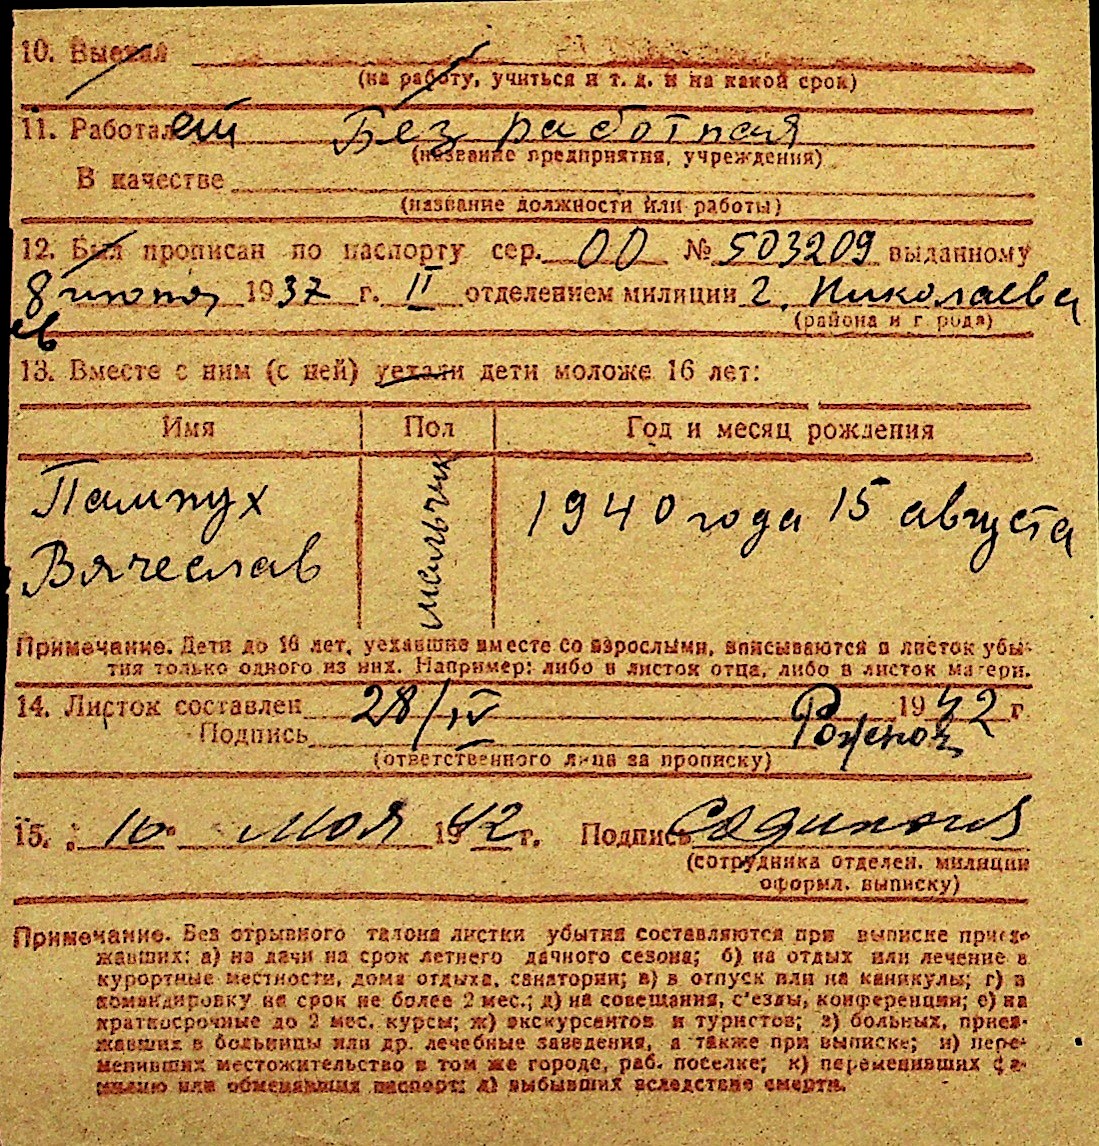 10. Выехал
(на работу, учиться и т. д. и на какой срок)
11. Работает Без работная
(название предприятия, учреждения)
В качестве
(название должности или работы)
12. Был прописан по паспорту сер. 00 № 503209 выданному
8 июня 1937 г. II отделением милиции г. Николаева
(района и г рода)
13. Вместе с ним (с ней) уехали дети моложе 16 лет:
Имя Пол Год и месяц рождения
Пампух мальчик 1940 года 15 августа
Вячеслав
Примечание. Дети до 16 лет, уехавшие вместе со взрослыми, вписываются в листок убы-
тия только одного из них. Например: либо в листок отца, либо в листок матери.
14. Листок составлен 28/IV 1942 г
Подпись
(ответственного лица за прописку)
15. " 16 " мая 1942 г. Подпись
(сотрудника отделен. милиции
оформл. выписку)
Примечание. Без отрывного талона листки убытия составляются при выписке приез-
жавших: а) на дачи на срок летнего дачного сезона; б) на отдых или лечение в
курортные местности, дома отдыха, санатории; в) в отпуск или на каникулы; г) в
командировку на срок не более 2 мес.; д) на совещания, с'езды, конференции; е) на
краткосрочные до 2 мес. курсы; ж) экскурсантов и туристов; з) больных, приез-
жавших в больницы или др. лечебные заведения, а также при выписке; и) пере-
менивших местожительство в том же городе, раб. поселке; к) переменивших фа-
милию или обменявших паспорт; л) выбывших вследствие смерти.